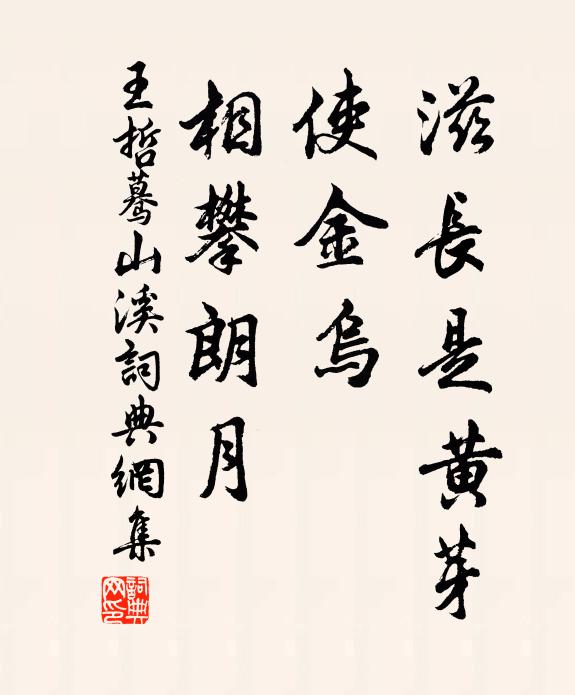 滋長是黃芽
使金烏
相攀朗月
王哲驀山溪詞典網集
詞典网印